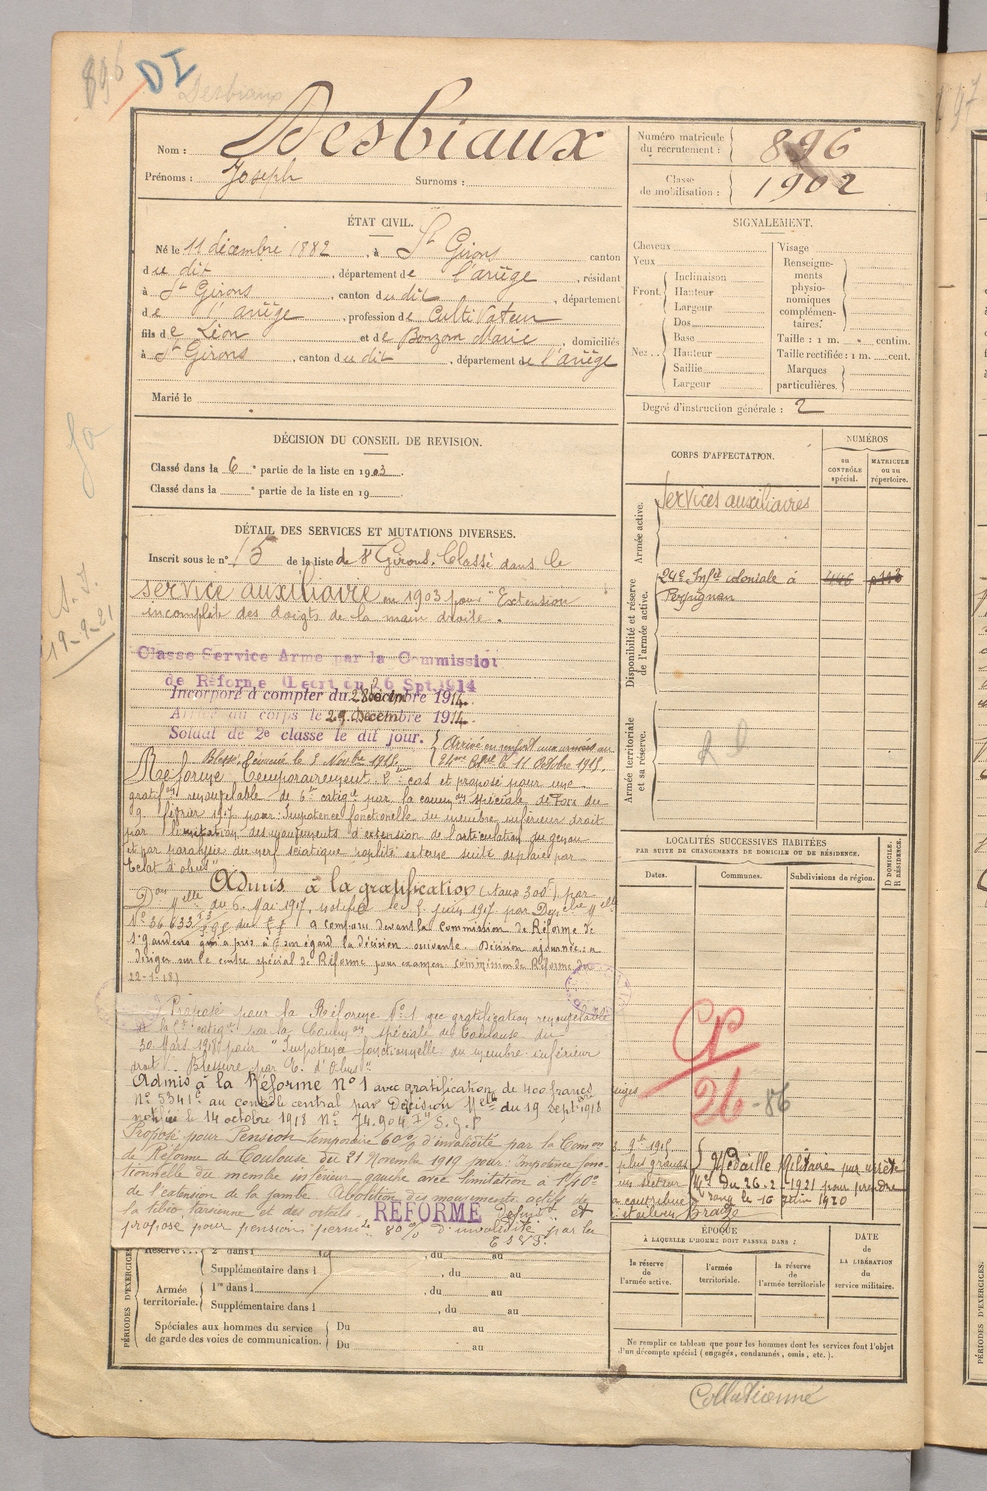 896
DI
Desbiaux
Nom : Desbiaux
Prénoms : Joseph Surnoms :
Numéro matricule du recrutement : 896
Classe de mobilisation : 1902
ÉTAT CIVIL.
Né le 11 décembre 1882, à St Girons canton
du dit, département de l'ariège, résidant
à St Girons, canton du dit, département
de l'ariège, profession de Cultivateur
fils de Léon et de Bonzom Marie, domiciliés
à St Girons, canton du dit, département de l'ariège
Marié le
SIGNALEMENT.
Cheveux
Yeux
Front. Inclinaison
Hauteur
Largeur
Nez.. Dos
Base
Hauteur
Saillie
Largeur
Visage
Renseigne-
ments
physio-
nomiques
complémen-
taires.
Taille : 1 m. centim.
Taille rectifiée : 1 m. cent.
Marques
particulières.
Degré d'instruction générale : 2
DÉCISION DU CONSEIL DE REVISION.
Classé dans la 6e partie de la liste en 1903.
Classé dans la e partie de la liste en 19
CORPS D'AFFECTATION.
NUMÉROS
au CONTRÔLE spécial.
MATRICULE ou au répertoire.
Armée active.
Services auxiliaires
Disponibilité et réserve de l'armée active.
24e Infie coloniale à
Perpignan
Armée territoriale et sa réserve.
DÉTAIL DES SERVICES ET MUTATIONS DIVERSES.
Inscrit sous le n° 15 de la liste de St Girons. Classé dans le
service auxiliaire en 1903 pour "Extension
incomplète des doigts de la main droite.
Classe Service Armé par la Commission
de Réforme (Decrt du 26 Spt. 1914
Incorporé à compter du 28 Décembre 1914.
Arrivé au corps le 29 Décembre 1914.
Soldat de 2e classe le dit jour.
Arrivé en renfort aux armées au
24me le 11 Octobre 1915.
Blessé, Evacué le 2 Novbre 1915.
Réformé Temporairement 2me cas et proposé pour une
gratifon renouvelable de 6e catigie par la comon spéciale de Foix du
9 février 1917 pour: Impotence fonctionelle du membre inférieur droit
par limitation des mouvements d'extension de l'articulation du genou
et par paralysie du nerf sciatique poplité externe suite de plaie par
éclat d'obus"
Admis à la gratification (taux 300f) par
Don Melle du 6 Mai 1917, notifiée le 5 juin 1917 par Melle
N° 36633 a comparu devant la Commission de Réforme de
St Gaudens qui a pris à son égard la décision suivante. Décision ajournée: a
diriger sur le centre spécial de Réforme pour examen Commission de Réforme du
22-1-18)
Proposé pour la Réforme N° 1 avec gratification renouvelable
spéciale de Toulouse du
30 Mars 1918 pour "Impotence fonctionnelle du membre inférieur
droit. Blessure par E. d'obus"
Admis à la Réforme N° 1 avec gratification de 400 francs
N° 5341c au contrôle central par Décision Melle du 19 septbre 1918
notifiée le 14 octobre 1918 N° 74.904
Proposé pour Pension temporaire 60% d'invalidité par la Comon
de Réforme de Toulouse du 21 Novembre 1919 pour: Impotence fonc-
tionnelle du membre inférieur gauche avec limitation à 140°
de l'extension de la jambe Abolition des mouvements actifs de
la tibio tarsienne et des orteils. RÉFORMÉ Définitif et
proposé pour pension permte 80% d'invalidité par la
19-9-21
LOCALITÉS SUCCESSIVES HABITÉES
PAR SUITE DE CHANGEMENTS DE DOMICILE OU DE RÉSIDENCE.
Dates.
Communes.
Subdivisions de région.
D DOMICILE. R RÉSIDENCE.
26-86
plus grands
un secteur
a contribué
Médaille Militaire par arrêté
Mel du 26-2-1921 pour prendre
rang le 16 Juin 1920
ÉPOQUE
À LAQUELLE L'HOMME DOIT PASSER DANS :
la réserve de l'armée active.
l'armée territoriale.
la réserve de l'armée territoriale
DATE de LA LIBÉRATION du service militaire.
PÉRIODES D'EXERCICES
Réserve... 2e dans l , du au
Supplémentaire dans l , du au
Armée territoriale. 1re dans l , du au
Supplémentaire dans l , du au
Spéciales aux hommes du service de garde des voies de communication. Du au
Du au
Ne remplir ce tableau que pour les hommes dont les services font l'objet
d'un décompte spécial (engagés, condamnés, omis, etc.).
Collationné
PÉRIODES D'EXERCICES: